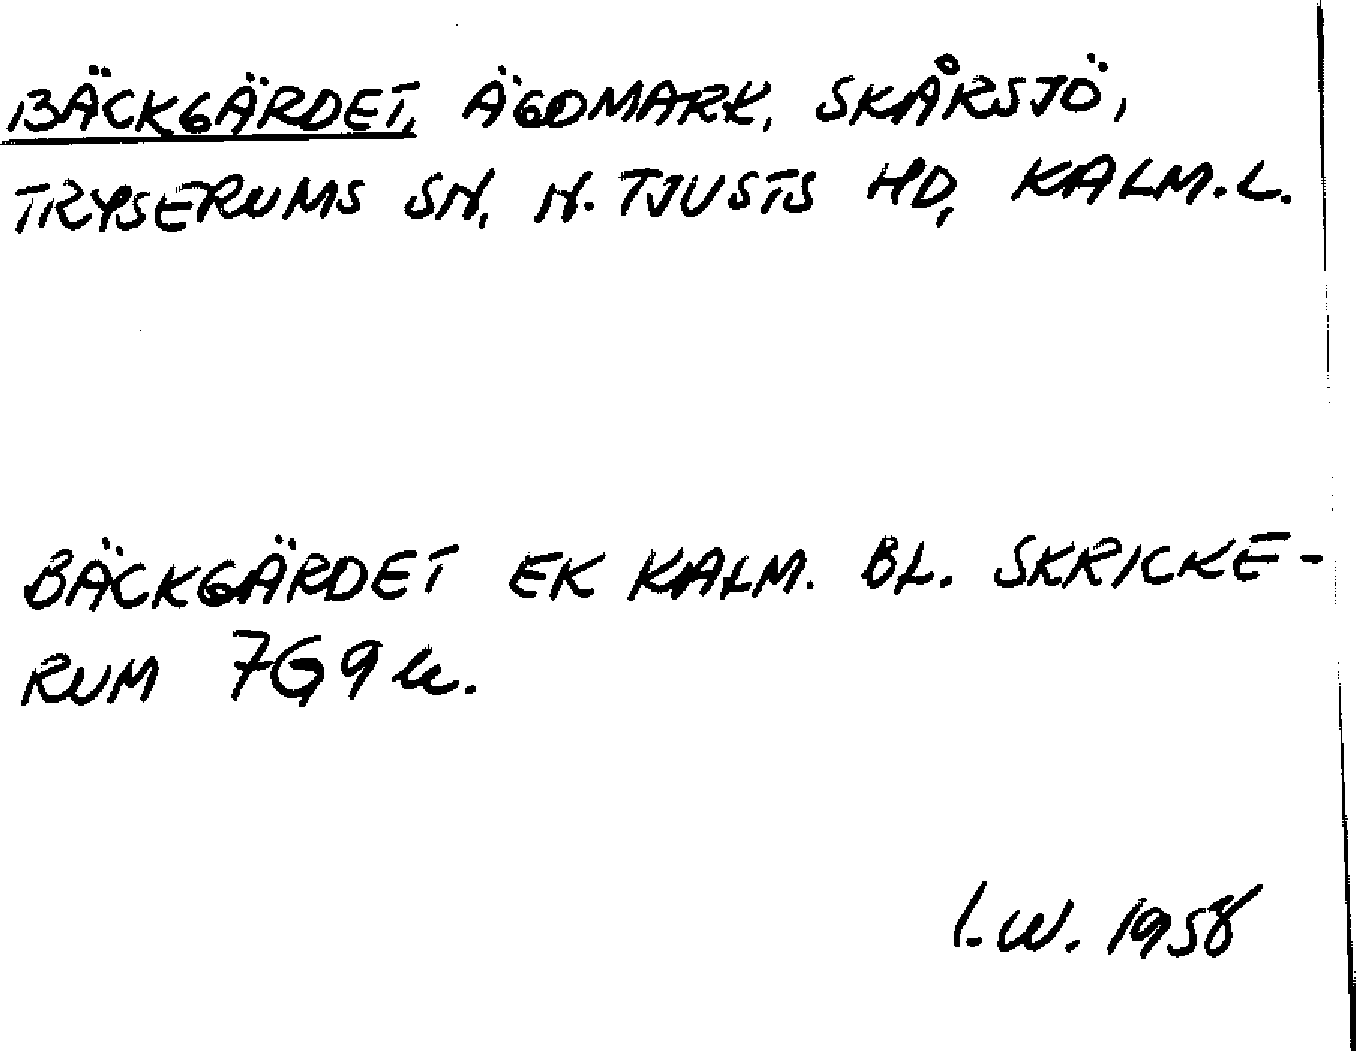 BÄCKGÄRDET, ÄGOMARK, SKÅRSJÖ,
TRYSERUMS SN, N. TJUSTS HD, KALM.L.
BÄCKGÄRDET EK KALM. BL. SKRICKE-
RUM 7G9
I.W. 1958